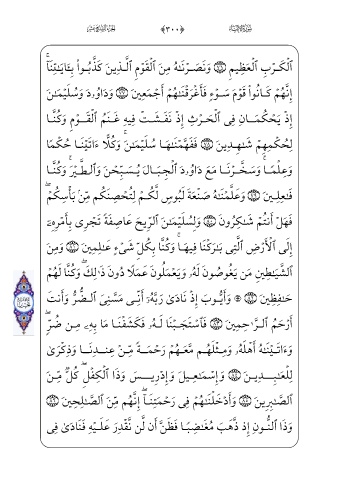 سورة الأنبياء (٣٠٠) الجزء السابع عشر
ٱلۡكَرۡبِ ٱلۡعَظِيمِ ٧٦ وَنَصَرۡنَٰهُ مِنَ ٱلۡقَوۡمِ ٱلَّذِينَ كَذَّبُواْ بِـَٔايَٰتِنَآۚ
إِنَّهُمۡ كَانُواْ قَوۡمَ سَوۡءٖ فَأَغۡرَقۡنَٰهُمۡ أَجۡمَعِينَ ٧٧ وَدَاوُۥدَ وَسُلَيۡمَٰنَ
إِذۡ يَحۡكُمَانِ فِي ٱلۡحَرۡثِ إِذۡ نَفَشَتۡ فِيهِ غَنَمُ ٱلۡقَوۡمِ وَكُنَّا
لِحُكۡمِهِمۡ شَٰهِدِينَ ٧٨ فَفَهَّمۡنَٰهَا سُلَيۡمَٰنَۚ وَكُلًّا ءَاتَيۡنَا حُكۡمٗا
وَعِلۡمٗاۚ وَسَخَّرۡنَا مَعَ دَاوُۥدَ ٱلۡجِبَالَ يُسَبِّحۡنَ وَٱلطَّيۡرَۚ وَكُنَّا
فَٰعِلِينَ ٧٩ وَعَلَّمۡنَٰهُ صَنۡعَةَ لَبُوسٖ لَّكُمۡ لِتُحۡصِنَكُم مِّنۢ بَأۡسِكُمۡۖ
فَهَلۡ أَنتُمۡ شَٰكِرُونَ ٨٠ وَلِسُلَيۡمَٰنَ ٱلرِّيحَ عَاصِفَةٗ تَجۡرِي بِأَمۡرِهِۦٓ
إِلَى ٱلۡأَرۡضِ ٱلَّتِي بَٰرَكۡنَا فِيهَاۚ وَكُنَّا بِكُلِّ شَيۡءٍ عَٰلِمِينَ ٨١ وَمِنَ
ٱلشَّيَٰطِينِ مَن يَغُوصُونَ لَهُۥ وَيَعۡمَلُونَ عَمَلٗا دُونَ ذَٰلِكَۖ وَكُنَّا لَهُمۡ
حَٰفِظِينَ ٨٢ ۞ وَأَيُّوبَ إِذۡ نَادَىٰ رَبَّهُۥٓ أَنِّي مَسَّنِيَ ٱلضُّرُّ وَأَنتَ
أَرۡحَمُ ٱلرَّٰحِمِينَ ٨٣ فَٱسۡتَجَبۡنَا لَهُۥ فَكَشَفۡنَا مَا بِهِۦ مِن ضُرّٖۖ
وَءَاتَيۡنَٰهُ أَهۡلَهُۥ وَمِثۡلَهُم مَّعَهُمۡ رَحۡمَةٗ مِّنۡ عِندِنَا وَذِكۡرَىٰ
لِلۡعَٰبِدِينَ ٨٤ وَإِسۡمَٰعِيلَ وَإِدۡرِيسَ وَذَا ٱلۡكِفۡلِۖ كُلّٞ مِّنَ
ٱلصَّٰبِرِينَ ٨٥ وَأَدۡخَلۡنَٰهُمۡ فِي رَحۡمَتِنَآۖ إِنَّهُم مِّنَ ٱلصَّٰلِحِينَ ٨٦
وَذَا ٱلنُّونِ إِذ ذَّهَبَ مُغَٰضِبٗا فَظَنَّ أَن لَّن نَّقۡدِرَ عَلَيۡهِ فَنَادَىٰ فِي